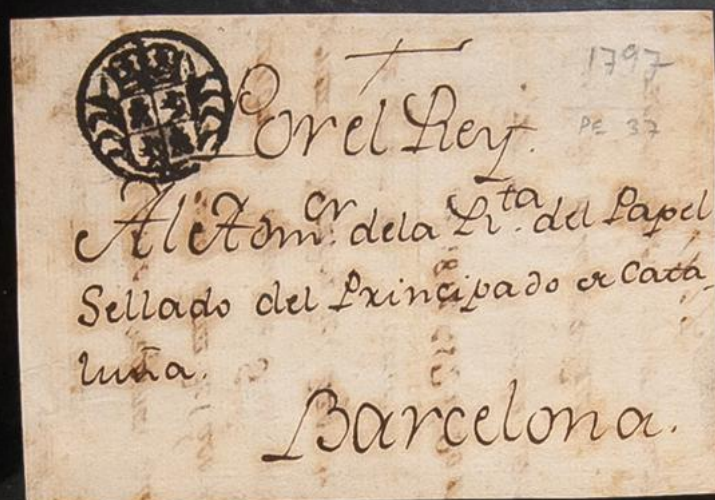 1797
PE 37
Por el Rey.
Al Adm.or de la R.ta del Papel
Sellado del Principado de Cata
luña.
Barcelona.